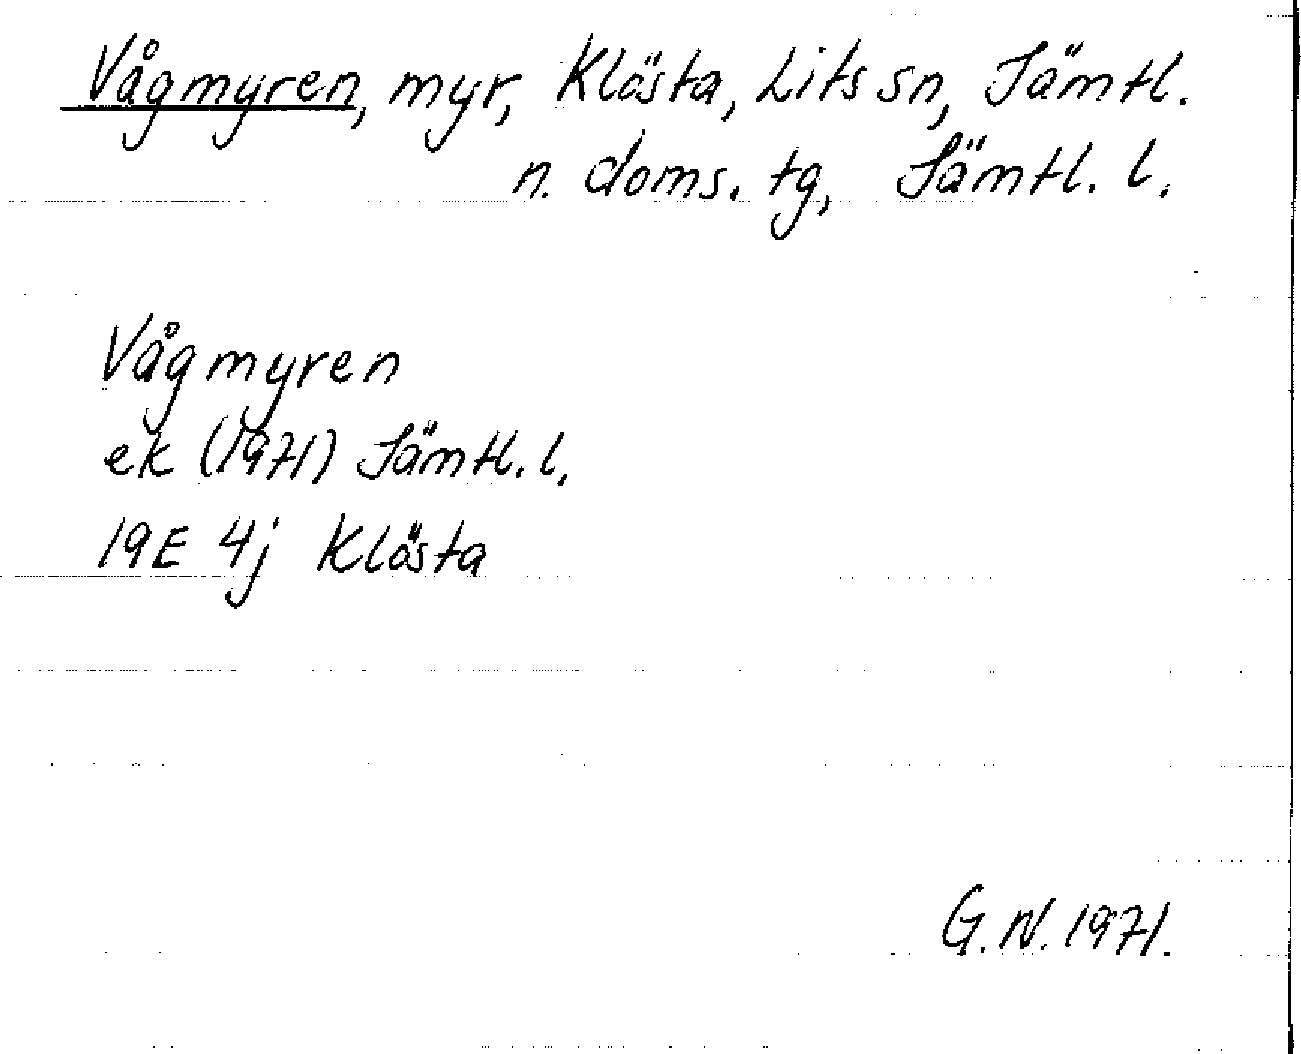 Vågmyren, myr, Klösta, Lits sn, Jämtl.
n. doms. tg, Jämtl. l.
Vågmyren
ek (1971) Jämtl. l.
19E 4j Klösta
G.N. 1971.